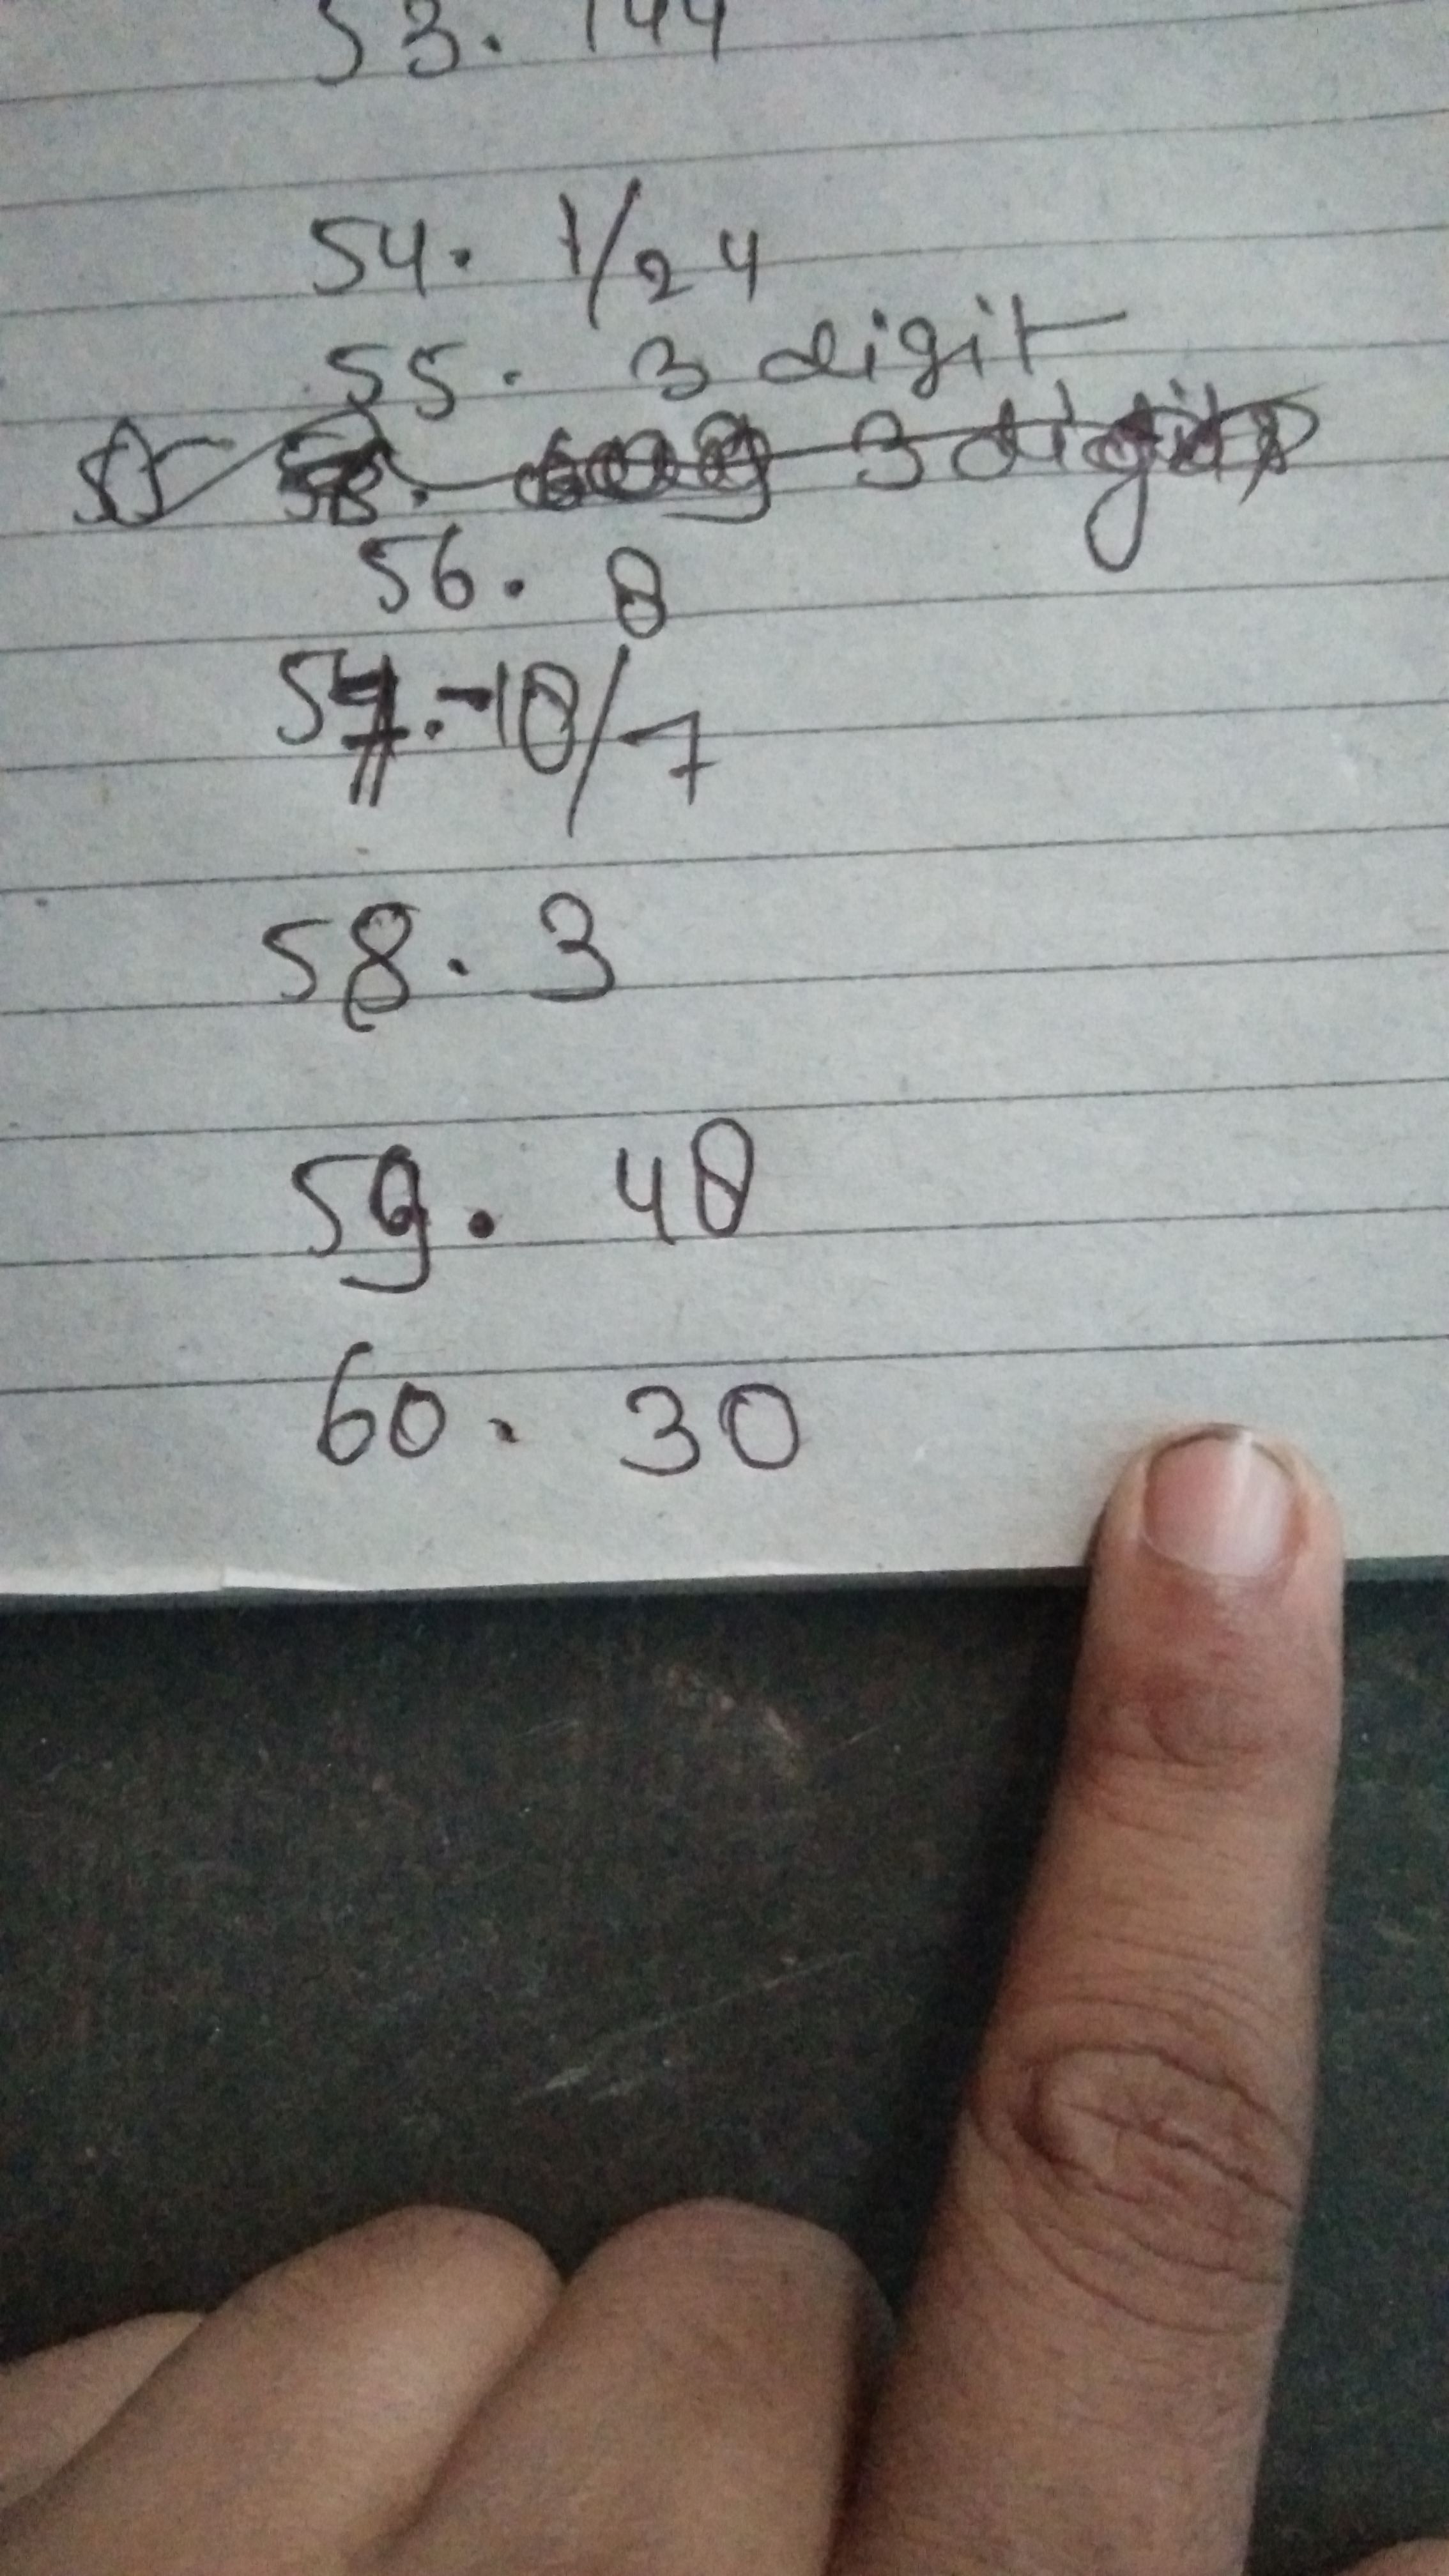 53. 144
54. 1/24
55. 3 digit
3 digits
56. 8
57. -18/7
58. 3
59. 48
60. 30